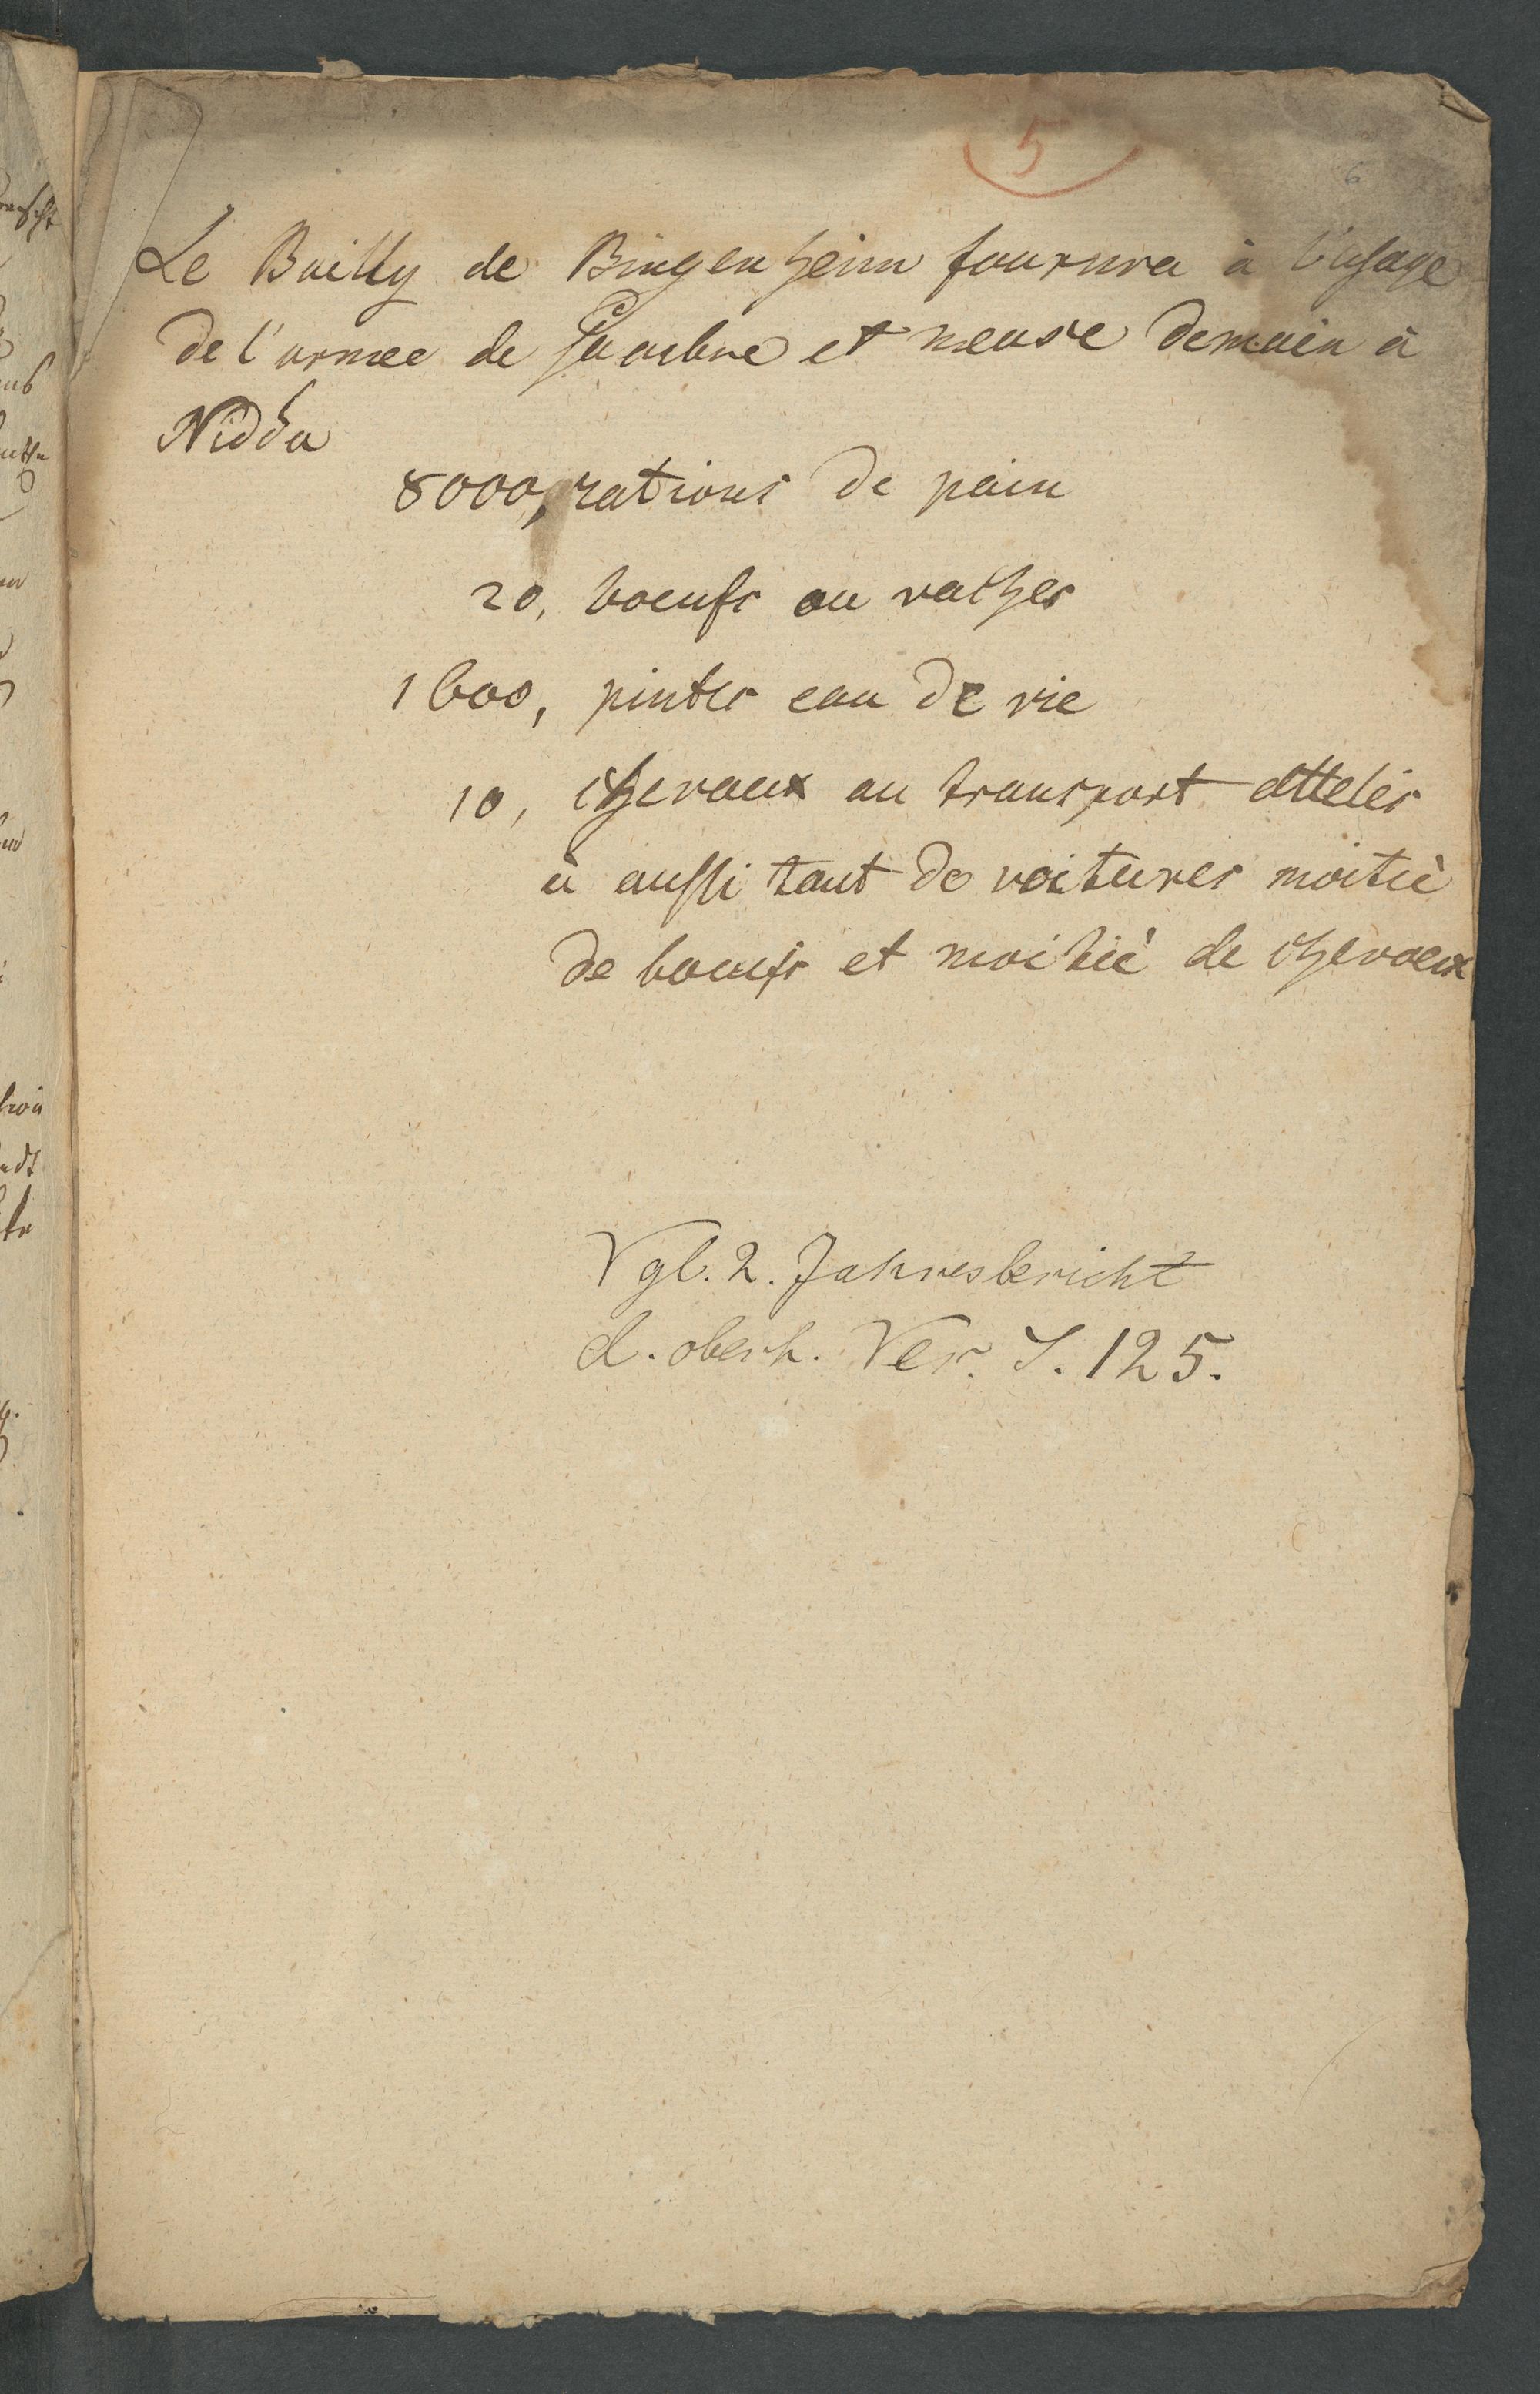 5
6
Le Bailly de Bingenheim fournira à l'usage
de l'armee de Sambre et meuse demain à
Nidda
8000, rations de pain
20, boeufs ou vaches
1600, pintes eau de vie
10, chevaux au transport attelés
à aussi tant de voitures moitiè
de boeufs et moitiè de chevaux
Vgl. 2. Jahresbericht
d. oberh. Ver. S. 125.